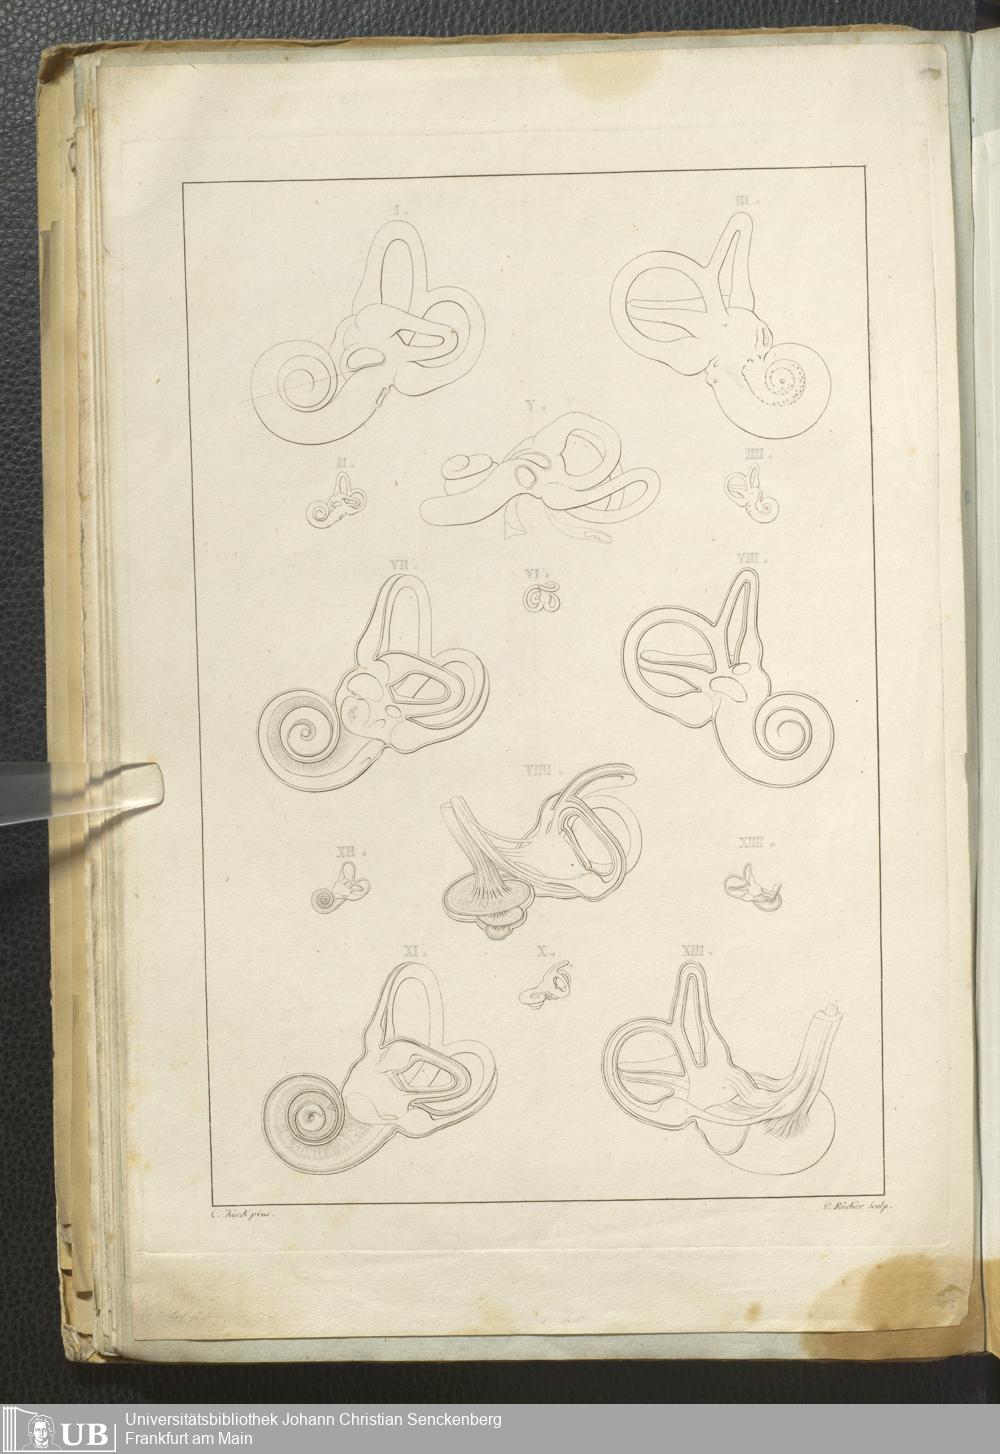 I.
III.
V.
II.
IIII.
VII.
VI.
VIII.
VIIII.
XII.
XIIII.
XI.
X.
XIII.
C. Köck pinx.
P. Rücker sculp.
UB
Universitätsbibliothek Johann Christian Senckenberg
Frankfurt am Main